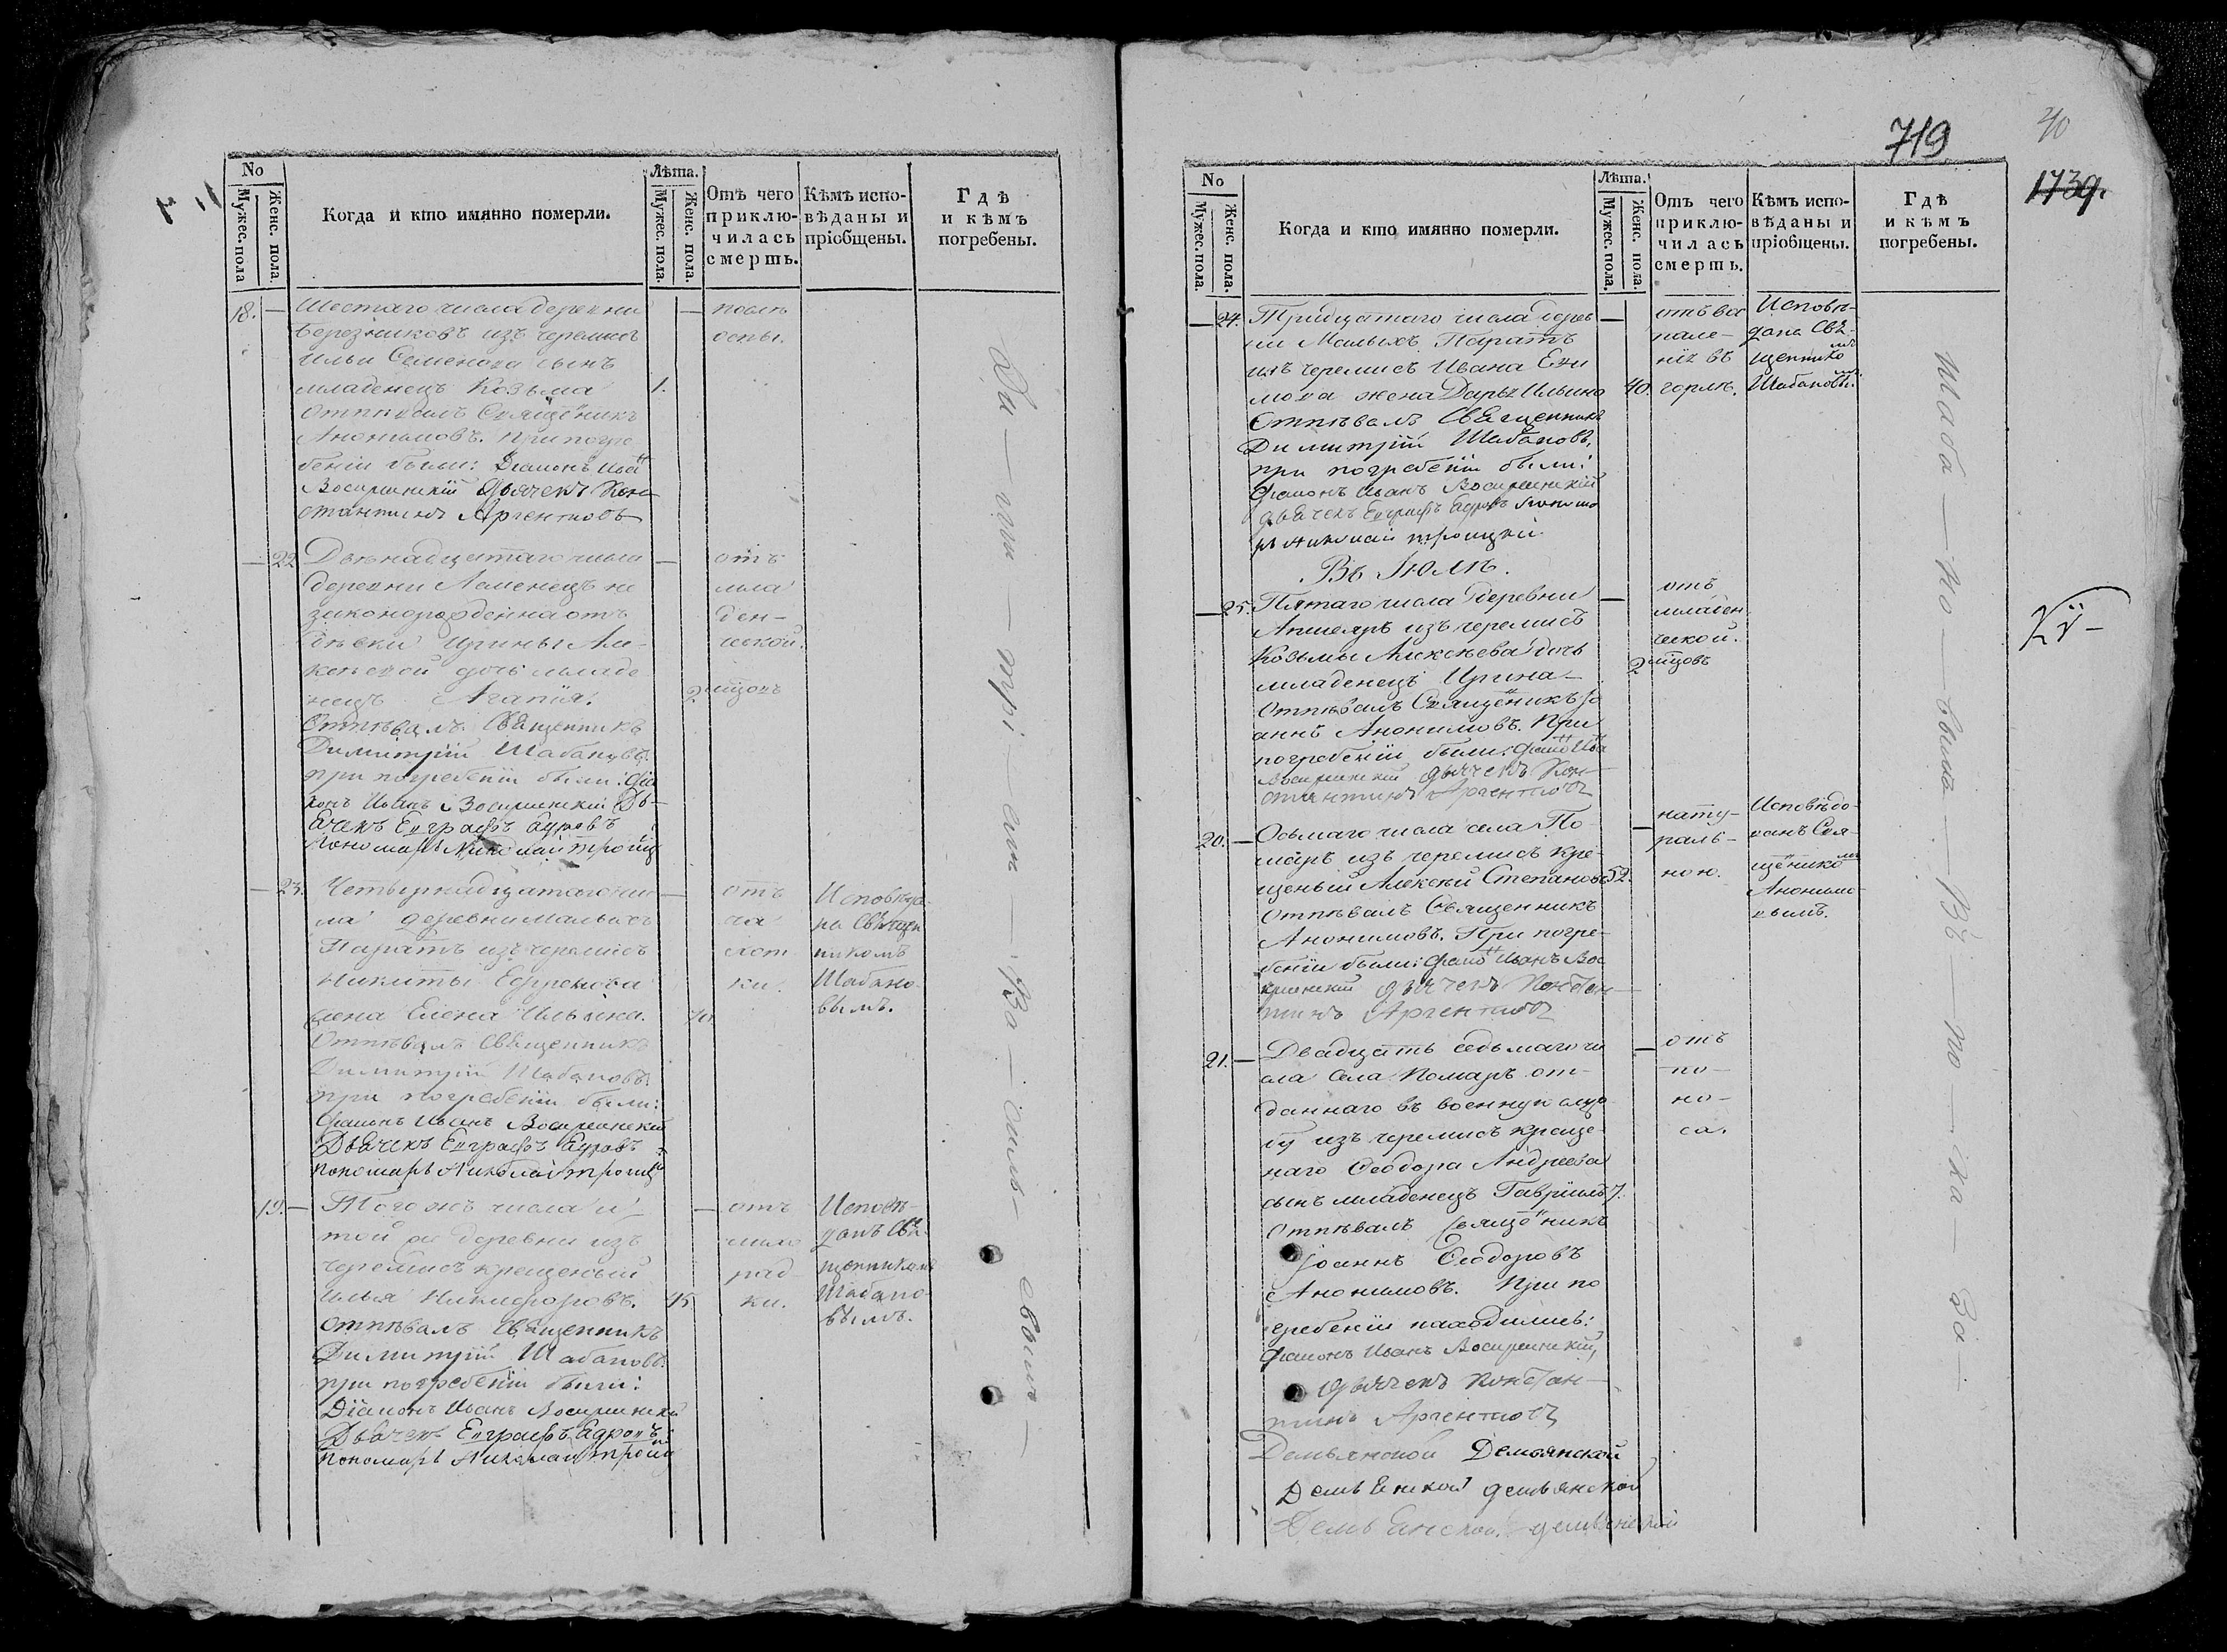 No
Мужес. пола
Женс. пола
Когда и кто имянно померли.
Лѣта.
Мужес. пола.
Женс. пола.
Отъ чего
приклю-
чилась
смерть.
Кѣмъ испо-
вѣданы и
пріобщены.
Гдѣ
и кѣмъ
погребены.
18. — Шестаго числа деревни
Березниковъ изъ черемисъ
Ильи Семенова сынъ
младенецъ Козьма 1.
отпѣвалъ Священникъ
Анонимовъ. При погре
беніи были: Діаконъ Иван
Воскрисенскій Дьячекъ Кон-
стантинъ Аргентовъ
оспы.
— 22 Двѣнадцатаго числа
деревни не
законорожденна отъ
дѣвки Ирины Але-
ксѣевой дочь младе
нецъ Агапія. 2
Отпѣвалъ Священникъ
Димитрій Шабановъ.
при погребеніи были: Діа
конъ Иванъ Дь-
ячекъ Евграфъ
Пономарь Николай Троиц
отъ
мла
ден-
ческой.
— 23. Четырнадцатаго чис
ла деревни Малыхъ
Паратъ изъ черемисъ
Никиты Ефремова
жена Елена Ильина. 70
Отпѣвалъ Священникъ
Димитрій Шабановъ.
при погребеніи были:
Діаконъ Иванъ
Дьячекъ Евграфъ
пономарь Николай Троиц
отъ
ча
хот
ки.
Исповѣда-
на Священ
никомъ
Шабано-
вымъ.
19. — Того жъ числа и
той же деревни изъ
черемисъ крещеный
Илья Никифоровъ. 45
отпѣвалъ Священникъ
Димитрій Шабановъ.
при погребеніи были:
Діаконъ Иванъ
Дьячекъ Евграфъ
пономарь Николай Троиц
отъ
лихо
рад-
ки.
Исповѣ-
данъ Свя-
щенникомъ
Шабано-
вымъ.
719
40
1739.
No
Мужес. пола.
Женс. пола.
Когда и кто имянно померли.
Лѣта.
Мужес. пола.
Женс. пола.
Отъ чего
приклю-
чилась
смерть.
Кѣмъ испо-
вѣданы и
пріобщены.
Гдѣ
и кѣмъ
погребены.
— 24. Тридцатаго числа дерев
ни Малыхъ Паратъ
изъ черемисъ Ивана Ефи
мова жена Дарья Ильина 40.
Отпѣвалъ Священникъ
Димитрій Шабановъ,
при погребеніи были:
Діаконъ Иванъ
дьячекъ Евграфъ Понома
рь Николай Троицкій
отъ вос
пале-
нія въ
горлѣ.
Исповѣ-
дана Свя-
щеннико мъ
Шабановы мъ
Въ Іюлѣ.
— 25. Пятаго числа деревни
Апшеяръ изъ черемисъ
Козьмы Алексѣева дочь
младенецъ Ирина — 2
Отпѣвалъ Священникъ Іо
аннъ Анонимовъ. При
погребеніи были: Діако Ива
дьячекъ Кон-
стантинъ Аргентовъ
отъ
младен
ческой.
20. — Осьмаго числа села По
маръ изъ черемисъ кре-
щеный Алексѣй Степановъ 52.
Отпѣвалъ Священникъ
Анонимовъ. При погре-
беніи были: Діако Иванъ Вос
дьячекъ Констан-
тинъ Аргентовъ
нату-
раль-
ною.
Исповѣдо-
ванъ Свя-
щеннико мъ
Анонимо-
вымъ.
21. — Двадцать седьмаго чи
сла села Помаръ от-
даннаго въ военную служ
бу изъ черемисъ креще-
наго Ѳеодора Андреева
сынъ младенецъ Гавріилъ 7.
Отпѣвалъ Священникъ
Іоаннъ Ѳеодоровъ
Анонимовъ. При по
гребеніи находились:
Діаконъ Иванъ
дьячекъ Констан-
тинъ Аргентовъ
отъ
по-
но-
са.
Демьянской Демьянской
Демьянской демьянской
Демьянской демьянской